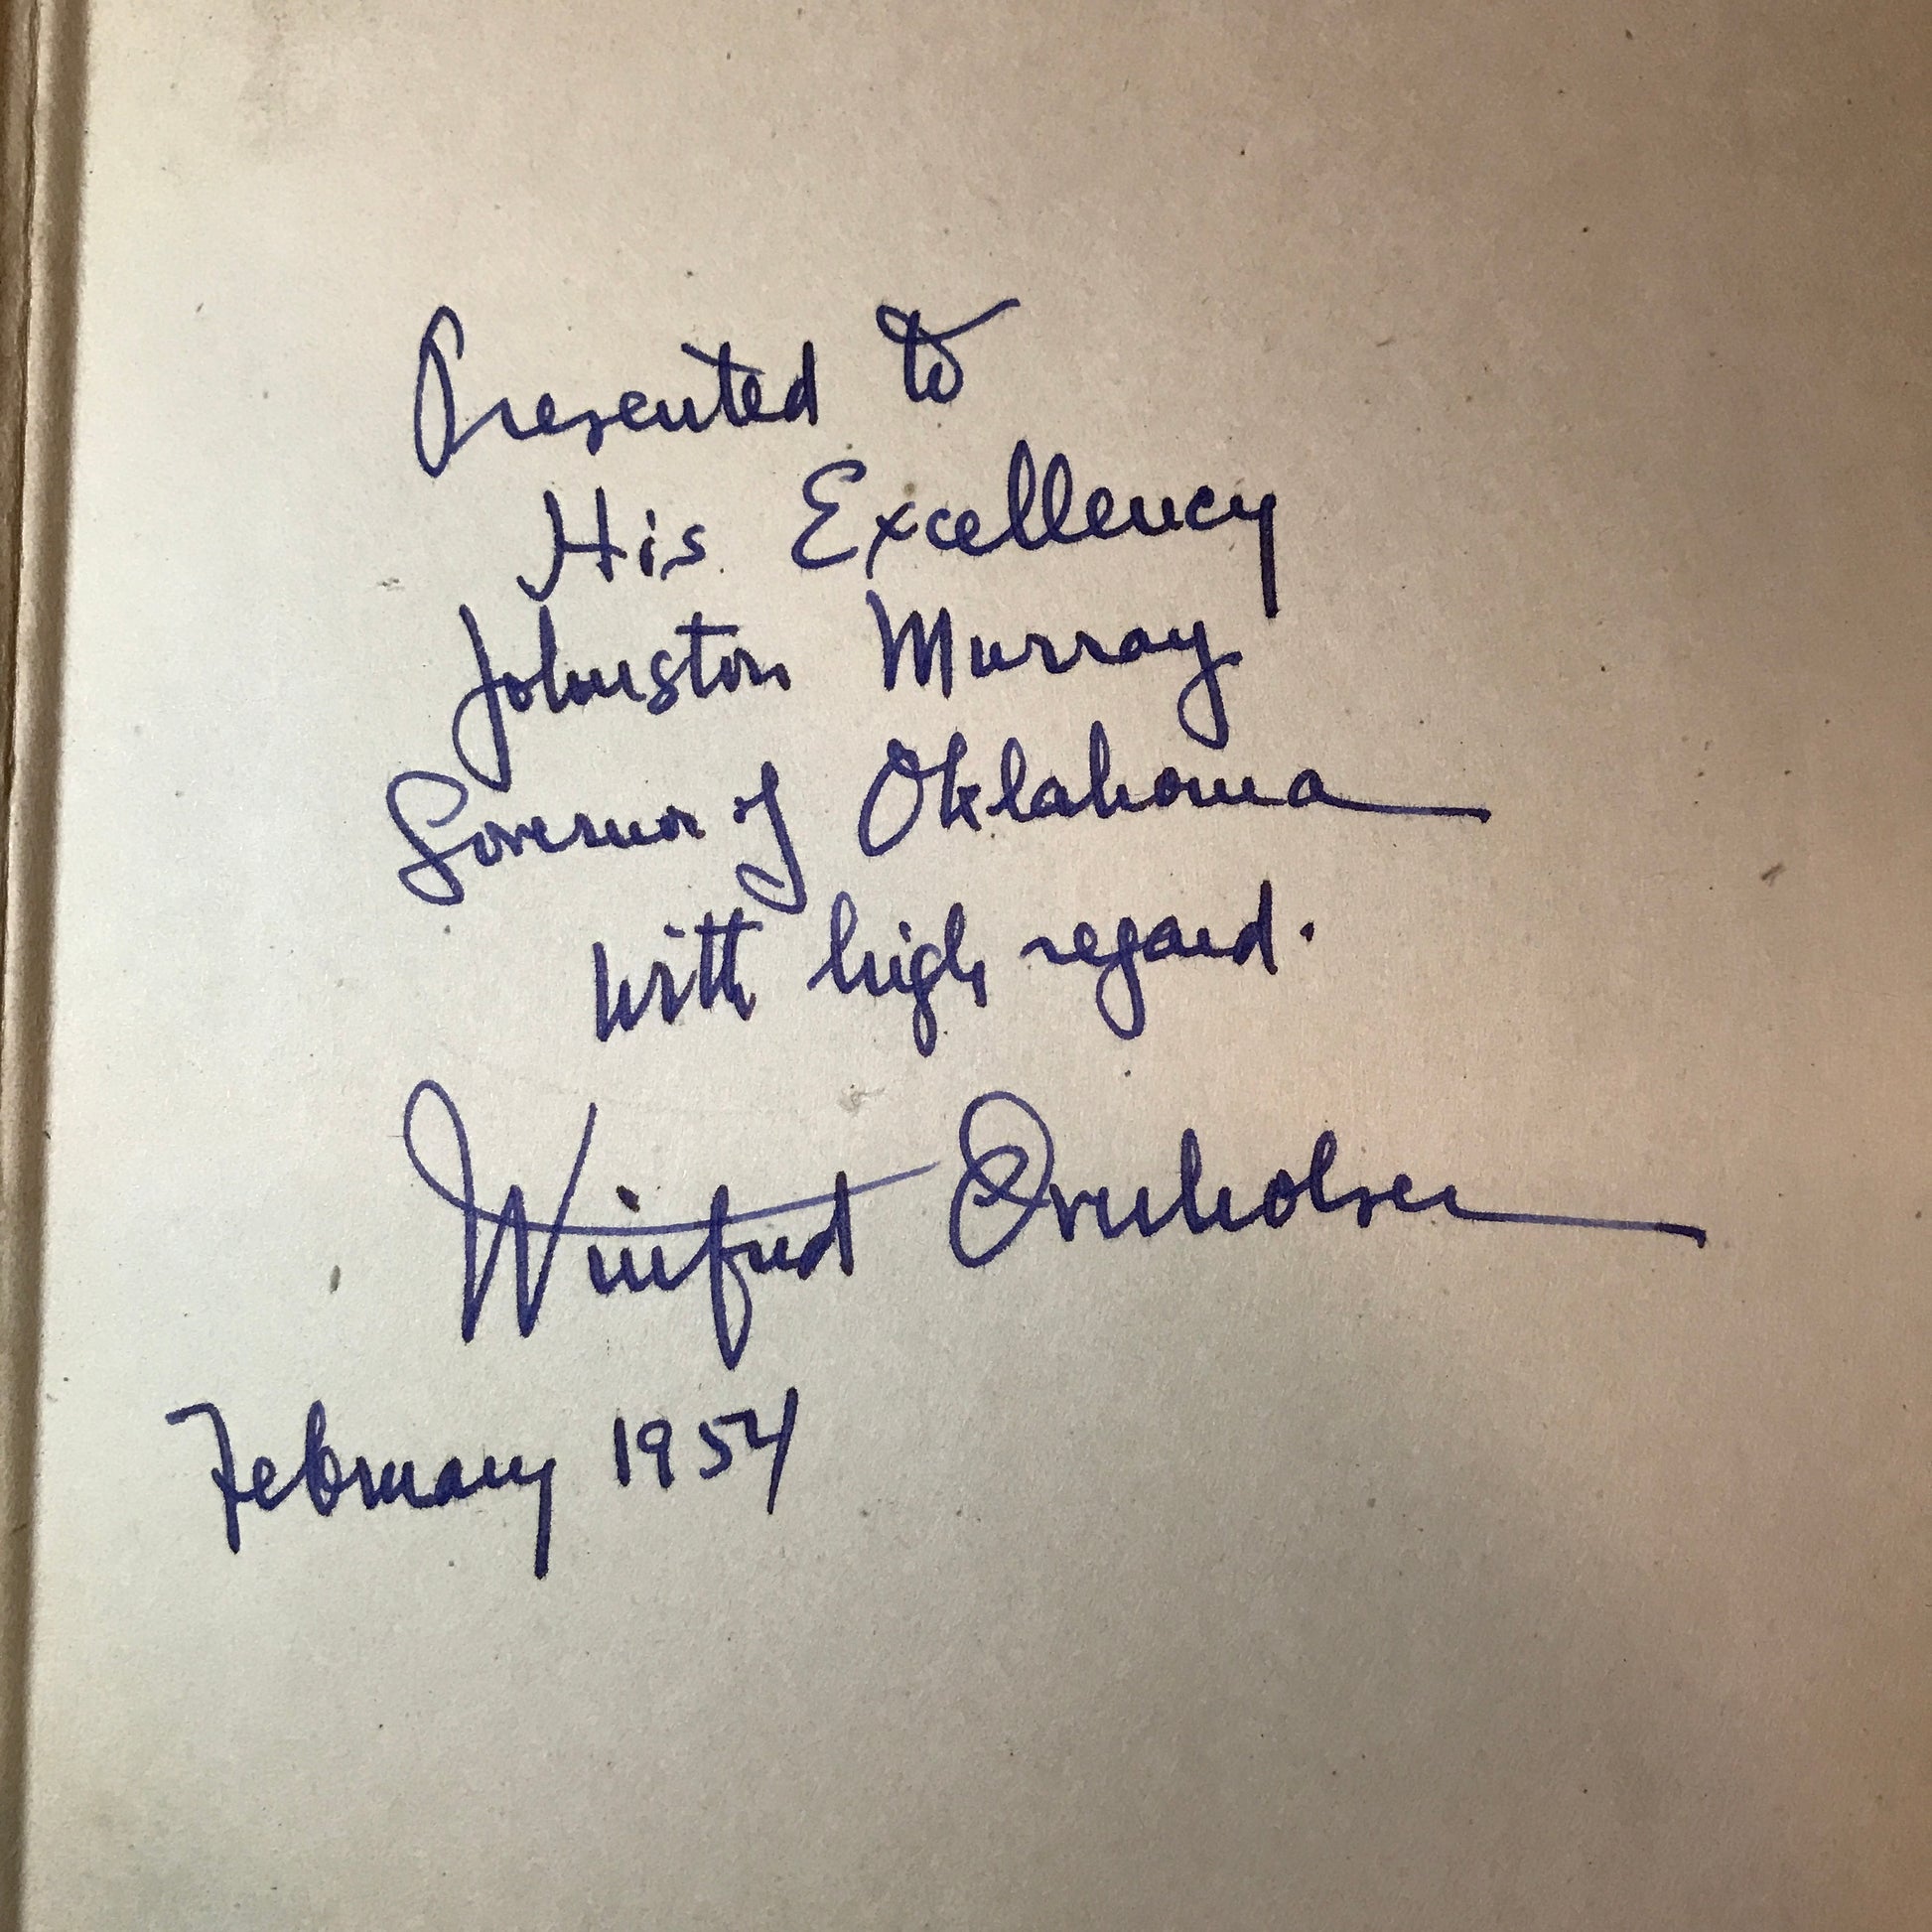 Presented to
His Excellency
Johnston Murray
Governor of Oklahoma
with high regard.
Winfred Overholser
February 1954